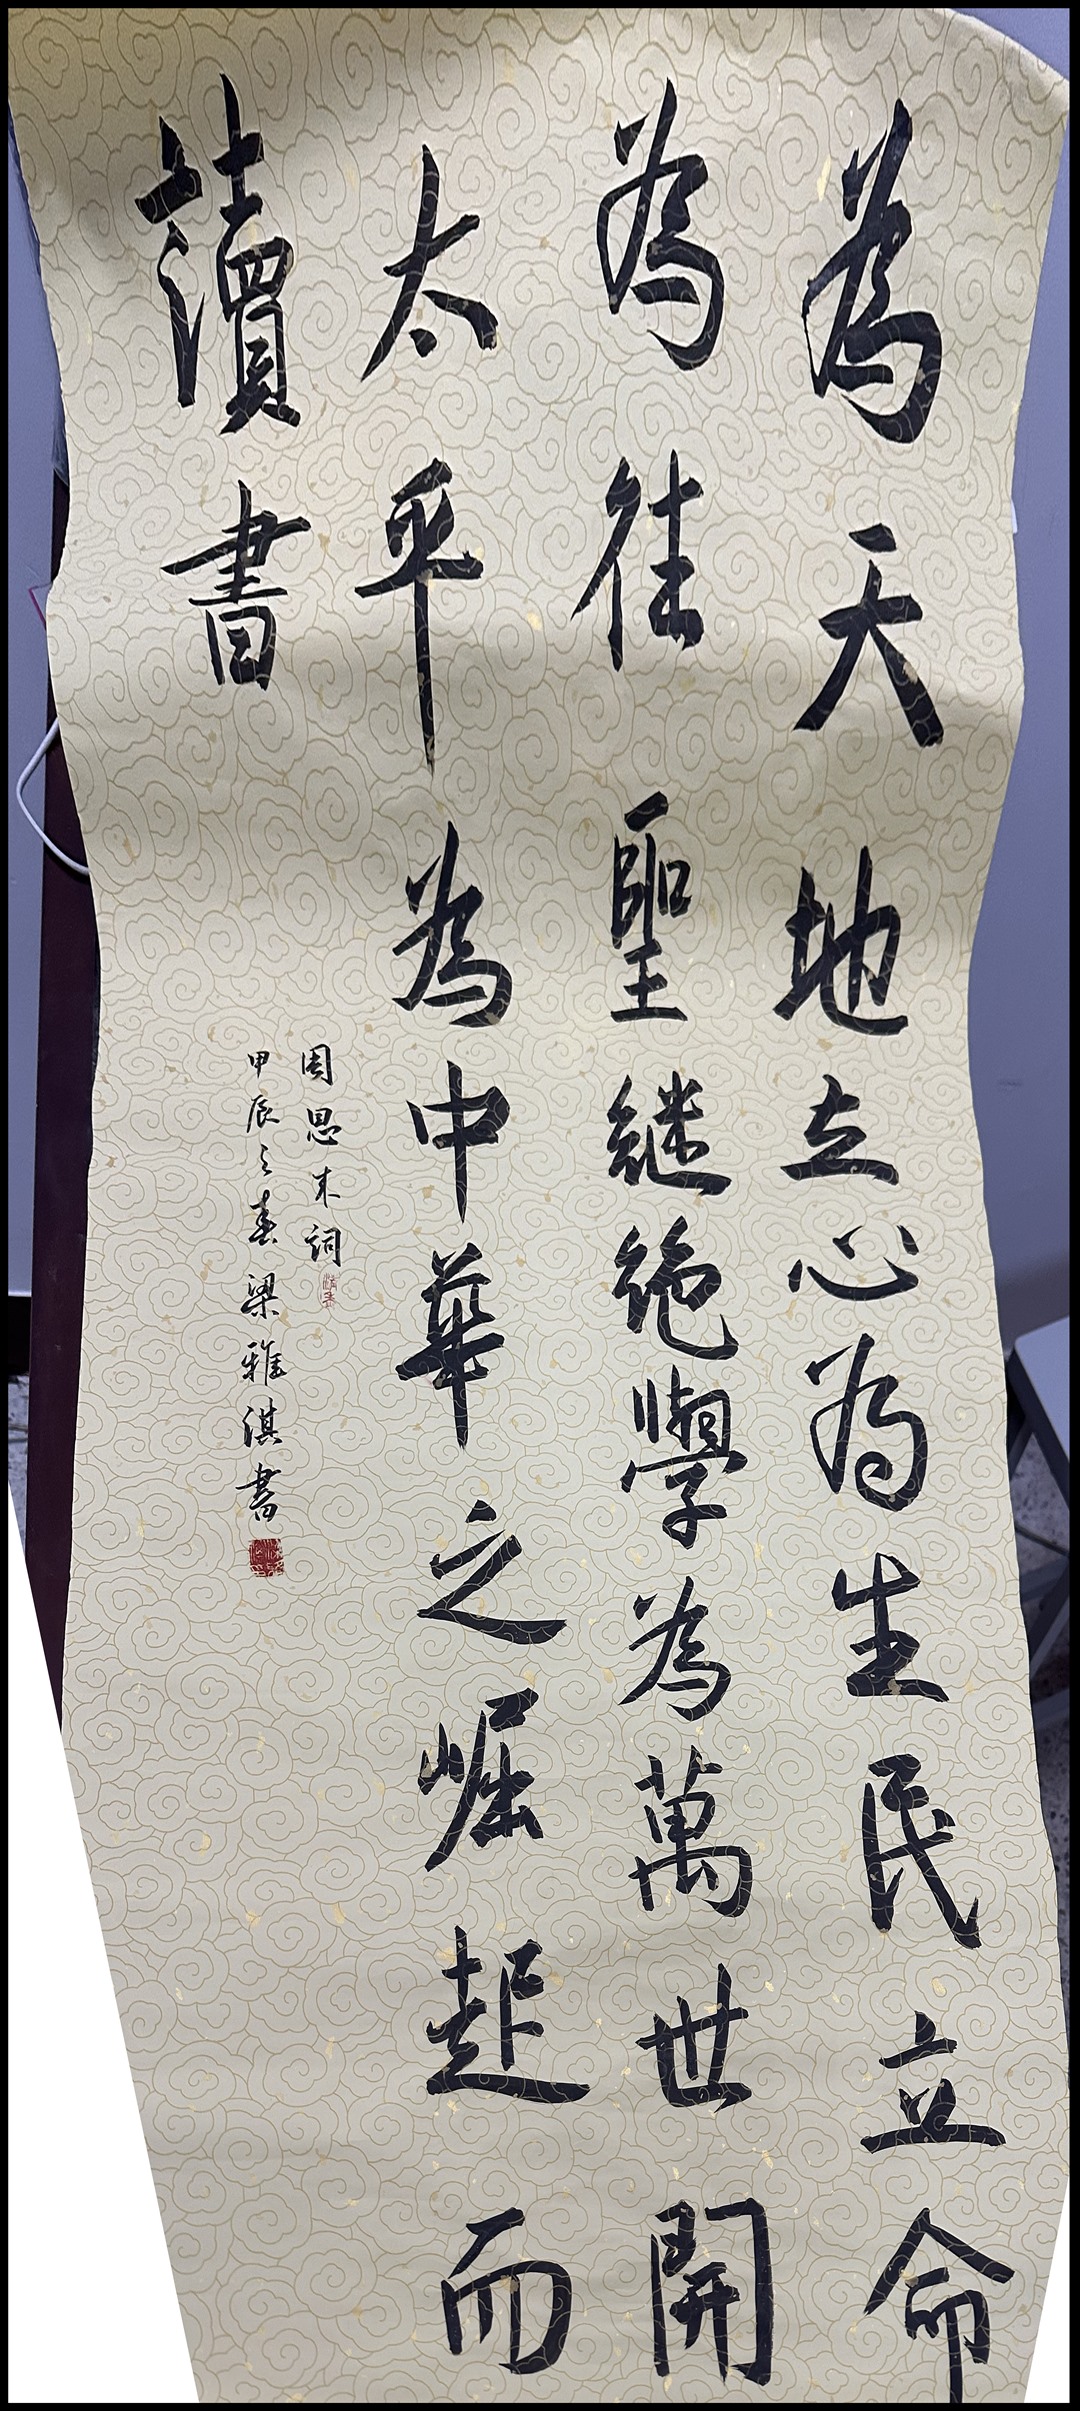 為天地立心為生民立命
為往聖继绝學為萬世開
太平為中華之崛起而
讀書
周恩来詞
甲辰之春梁雅淇書